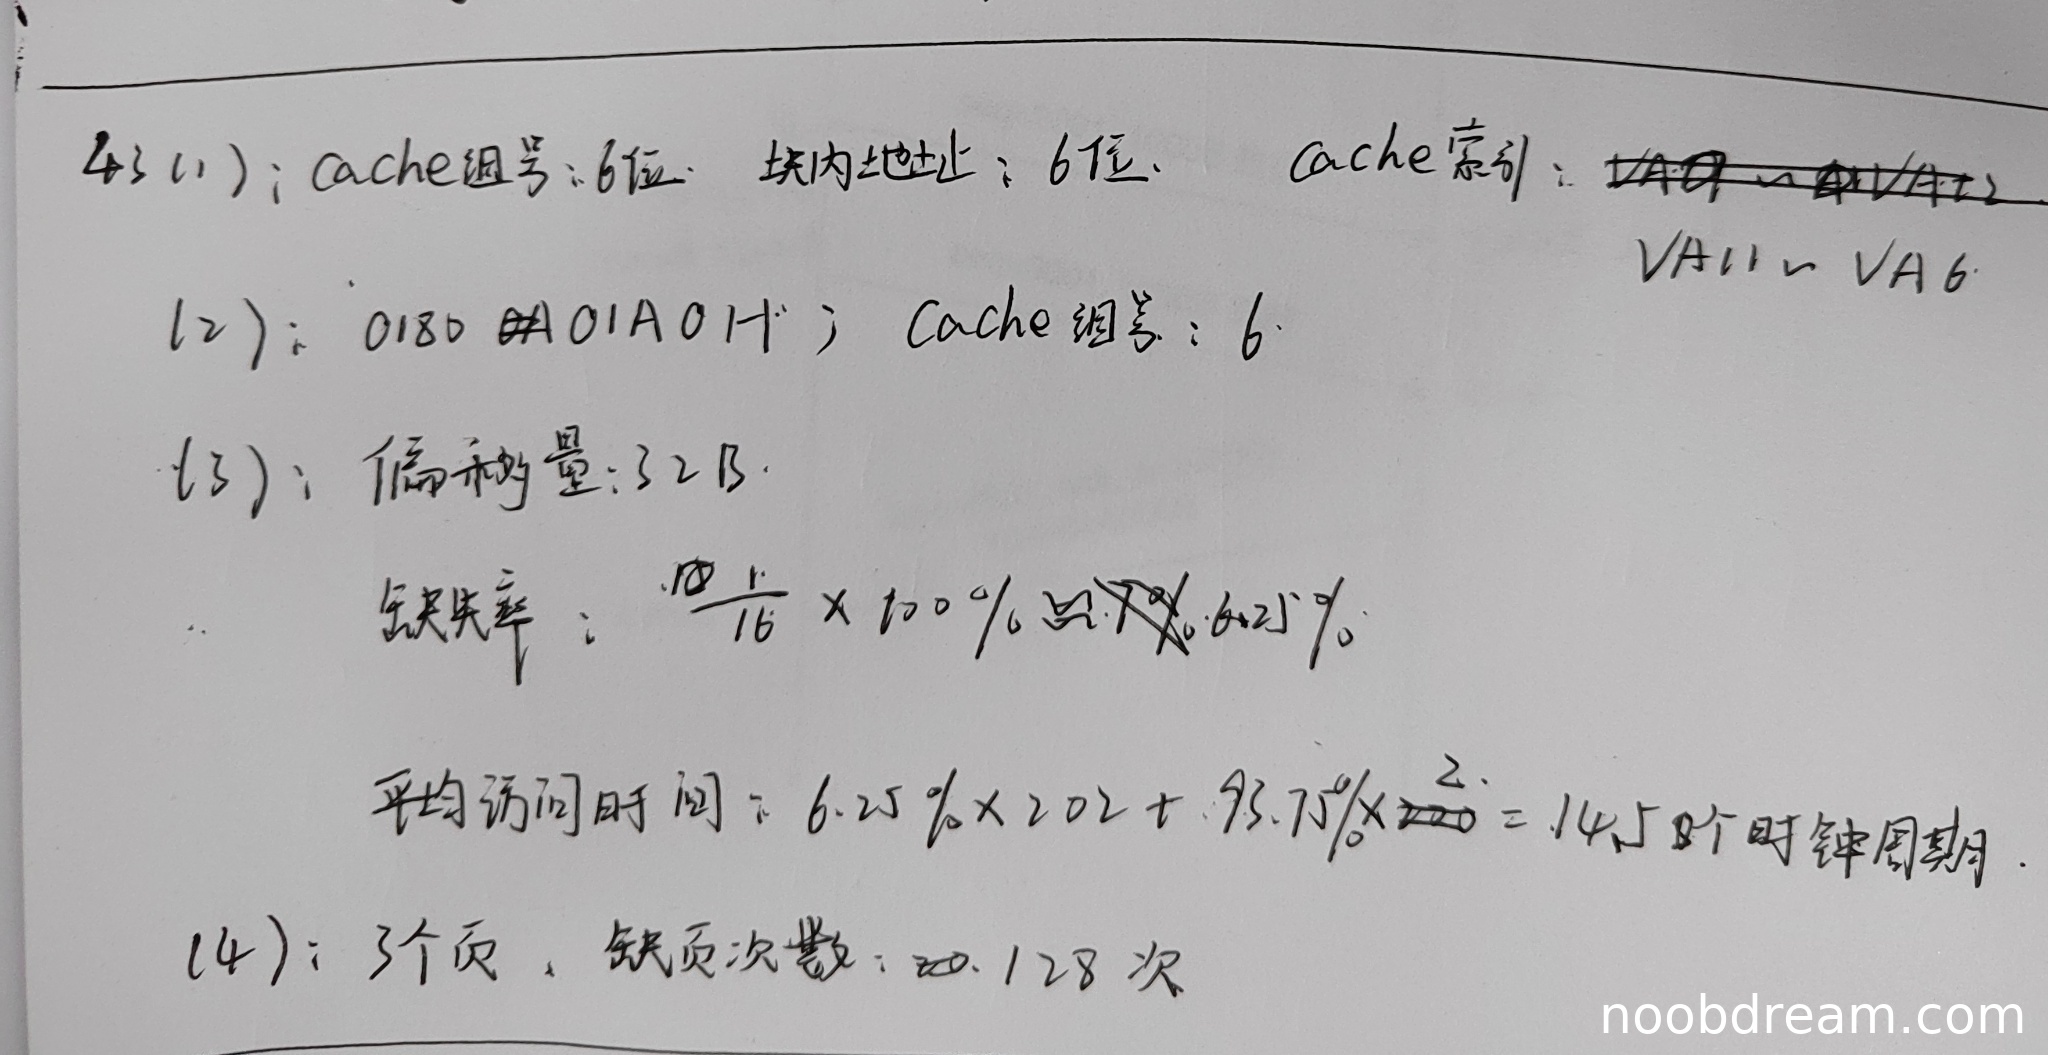 43(1): Cache组号:6位. 块内地址:6位. Cache索引:
VA11~VA6.
(2): 018001A0H; Cache组号:6.
(3): 偏移量:32B.
缺失率: 1/16 × 100% 6.25%.
平均访问时间: 6.25%×202+93.75%×2=14.5个时钟周期.
(4): 3个页, 缺页次数: 128次
noobdream.com